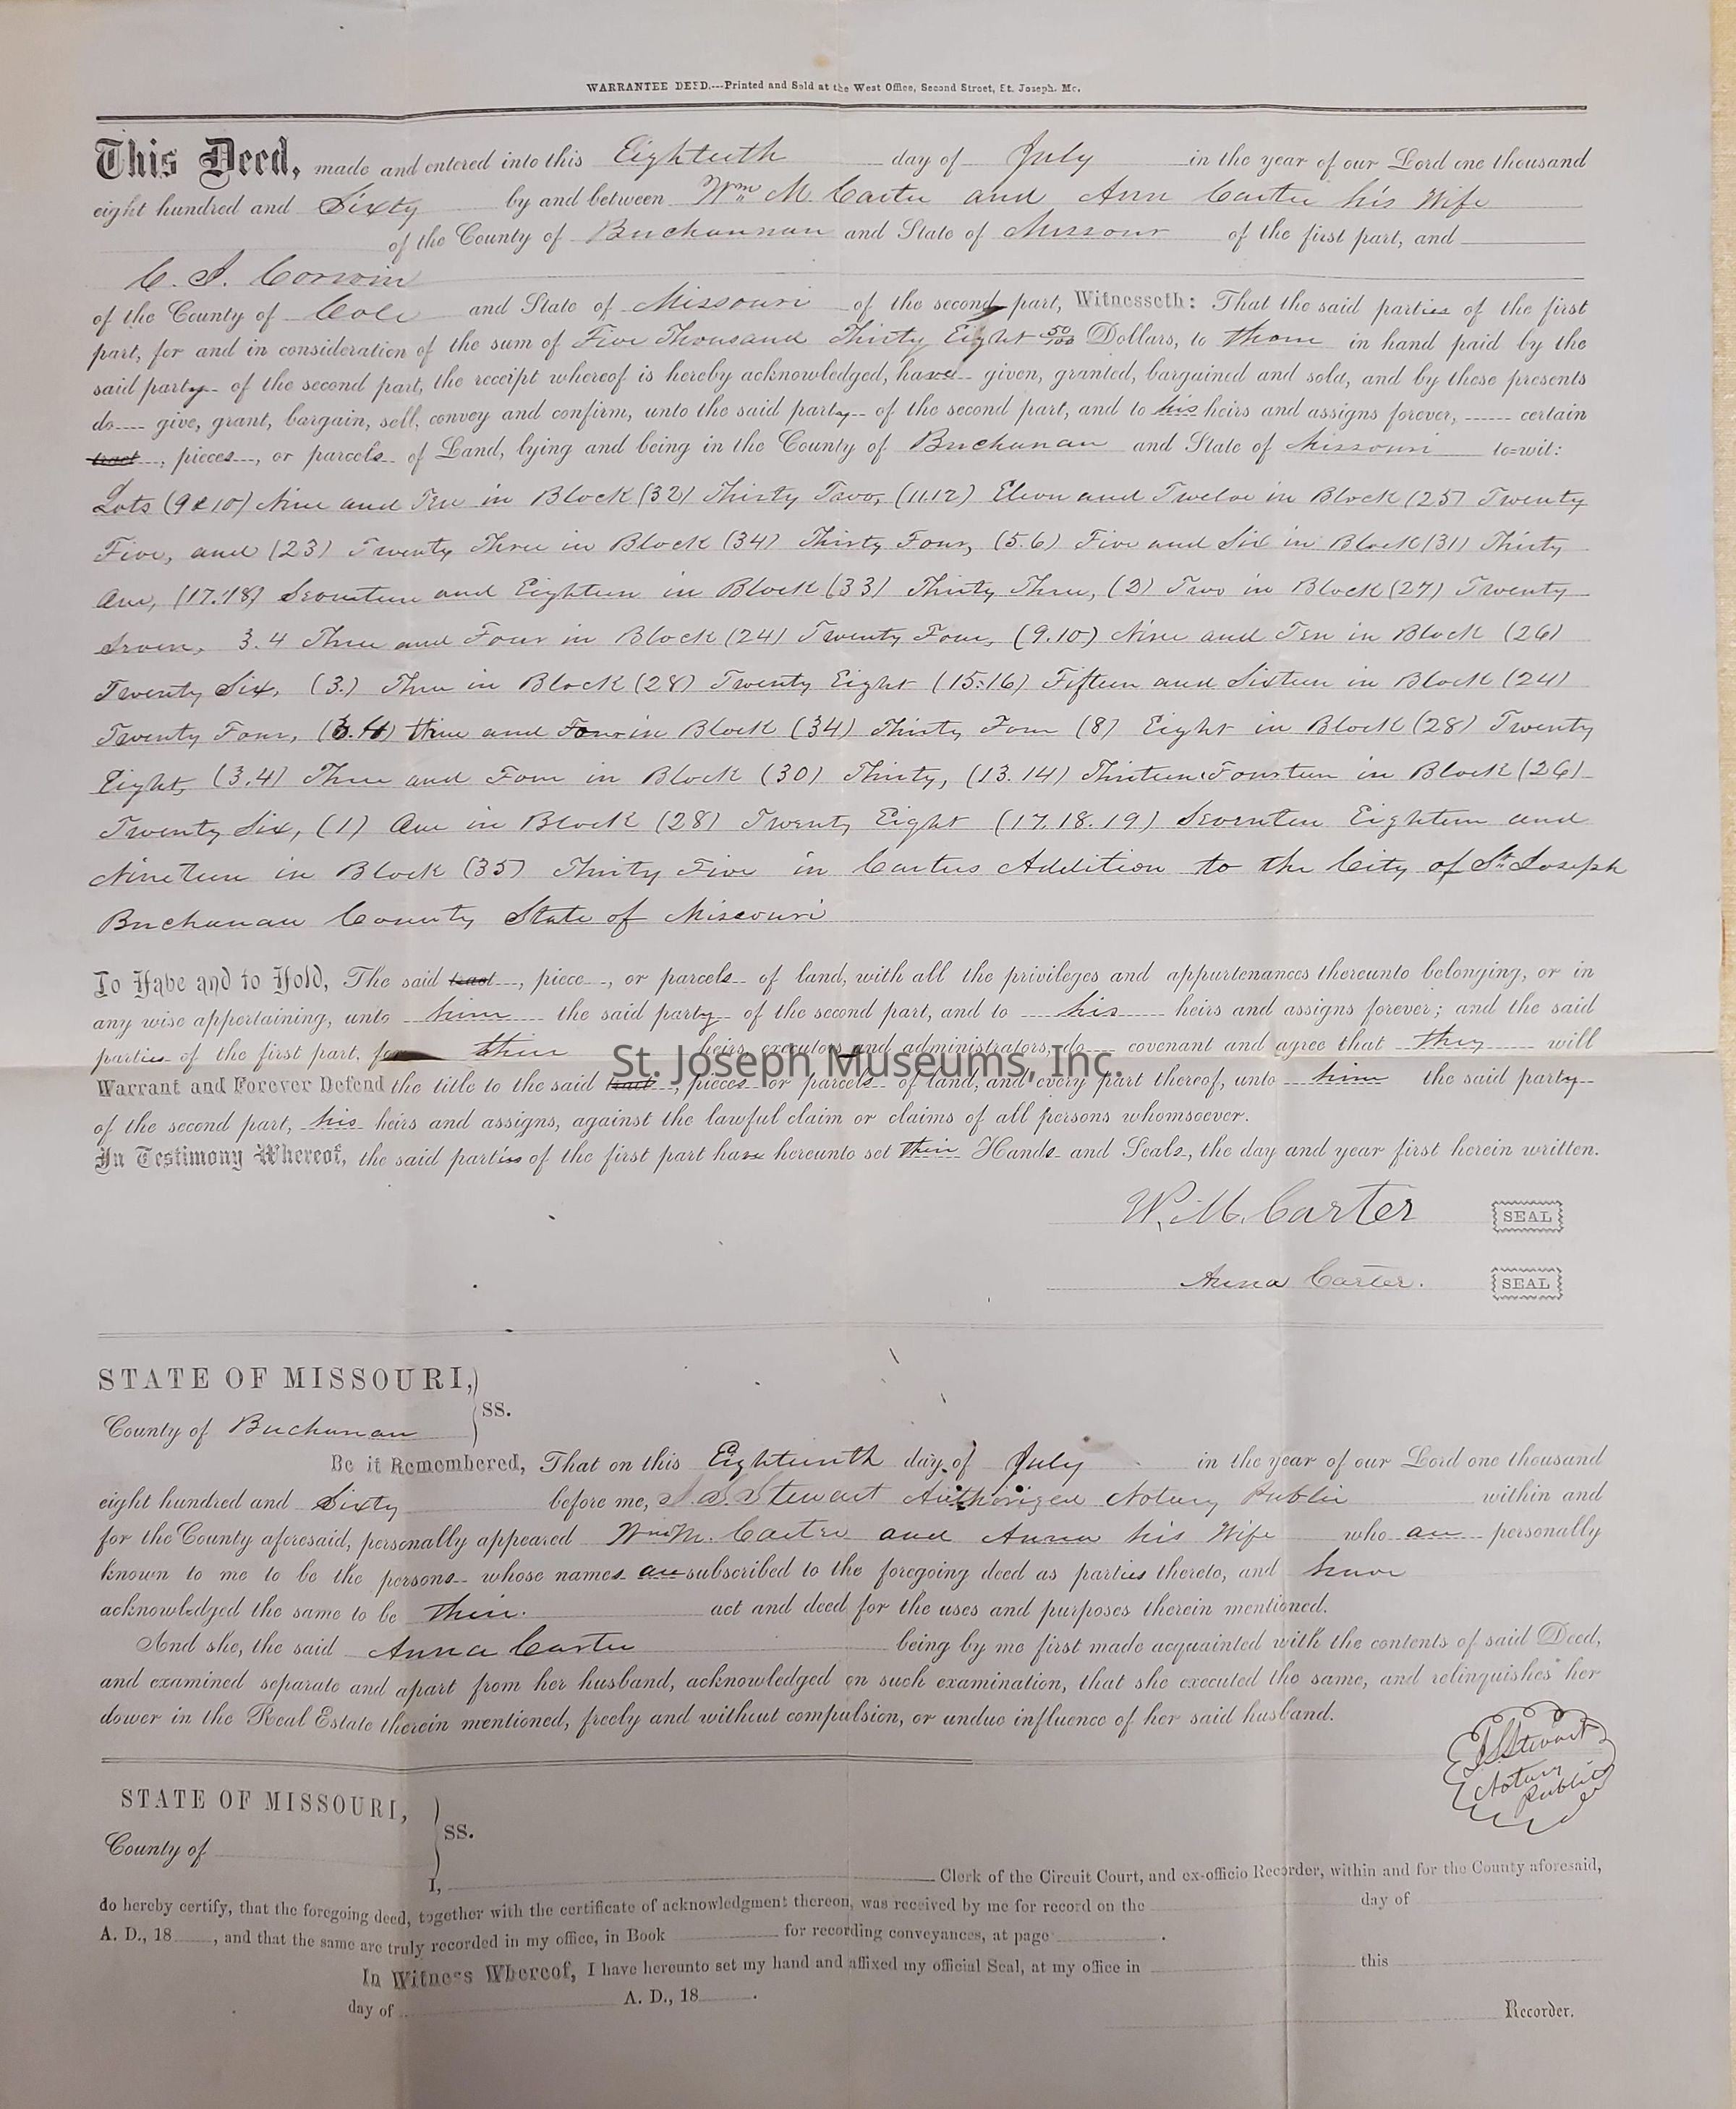 WARRANTEE DEED.---Printed and Sold at the West Office, Second Street, St. Joseph. Mo.
This Deed, made and entered into this Eighteeth day of July in the year of our Lord one thousand
eight hundred and Sixty by and between Wm M. Carter and Ann Carter his Wife
of the County of Buchannan and State of Missour of the first part, and
C. S. Corwin
of the County of Cole and State of Missouri of the second part, Witnesseth: That the said parties of the first
part, for and in consideration of the sum of Five Thousand Thirty Eight 50/100 Dollars, to them in hand paid by the
said party of the second part, the receipt whereof is hereby acknowledged, have given, granted, bargained and sold, and by these presents
do give, grant, bargain, sell, convey and confirm, unto the said party of the second part, and to his heirs and assigns forever, certain
tract, pieces, or parcels of Land, lying and being in the County of Buchanan and State of Missouri to=wit:
Lots (9 & 10) Nine and Ten in Block (32) Thirty Two, (11.12) Eleven and Twelve in Block (25) Twenty
Five, and (23) Twenty Three in Block (34) Thirty Four, (5.6) Five and Six in Block (31) Thirty
One, (17.18) Seventeen and Eighteen in Block (33) Thirty Three, (2) Two in Block (27) Twenty
Seven, 3.4 Three and Four in Block (24) Twenty Four, (9.10) Nine and Ten in Block (26)
Twenty Six, (3.) Three in Block (28) Twenty Eight (15.16) Fifteen and Sixteen in Block (24)
Twenty Four, (3.4) three and Four in Block (34) Thirty Four (8) Eight in Block (28) Twenty
Eight, (3.4) Three and Four in Block (30) Thirty, (13.14) Thirteen & Fourteen in Block (26)
Twenty Six, (1) One in Block (28) Twenty Eight (17.18.19) Seventeen Eighteen and
Nineteen in Block (35) Thirty Five in Carters Addition to the City of St. Joseph
Buchanan County State of Missouri
To Have and to Hold, The said tract, piece, or parcels of land, with all the privileges and appurtenances thereunto belonging, or in
any wise appertaining, unto him the said party of the second part, and to his heirs and assigns forever; and the said
parties of the first part, for their heirs, executors and administrators, do covenant and agree that they will
St. Joseph Museums, Inc.
Warrant and Forever Defend the title to the said tract, pieces or parcels of land, and every part thereof, unto him the said party
of the second part, his heirs and assigns, against the lawful claim or claims of all persons whomsoever.
In Testimony Whereof, the said parties of the first part have hereunto set their Hands and Seals, the day and year first herein written.
W. M. Carter SEAL
Anna Carter. SEAL
STATE OF MISSOURI,
SS.
County of Buchanan
Be it Remembered, That on this Eighteenth day of July in the year of our Lord one thousand
eight hundred and Sixty before me, J. S. Stewart Authorized Notary Public within and
for the County aforesaid, personally appeared Wm M. Carter and Anna his Wife who are personally
known to me to be the persons whose names are subscribed to the foregoing deed as parties thereto, and have
acknowledged the same to be their act and deed for the uses and purposes therein mentioned.
And she, the said Anna Carter being by me first made acquainted with the contents of said Deed,
and examined separate and apart from her husband, acknowledged on such examination, that she executed the same, and relinquishes her
dower in the Real Estate therein mentioned, freely and without compulsion, or undue influence of her said husband.
J S Stewart
Notary
Public
STATE OF MISSOURI,
SS.
County of
I, Clerk of the Circuit Court, and ex-officio Recorder, within and for the County aforesaid,
do hereby certify, that the foregoing deed, together with the certificate of acknowledgment thereon, was received by me for record on the day of
A. D., 18 , and that the same are truly recorded in my office, in Book for recording conveyances, at page .
In Witness Whereof, I have hereunto set my hand and affixed my official Seal, at my office in this
day of A. D., 18 .
Recorder.